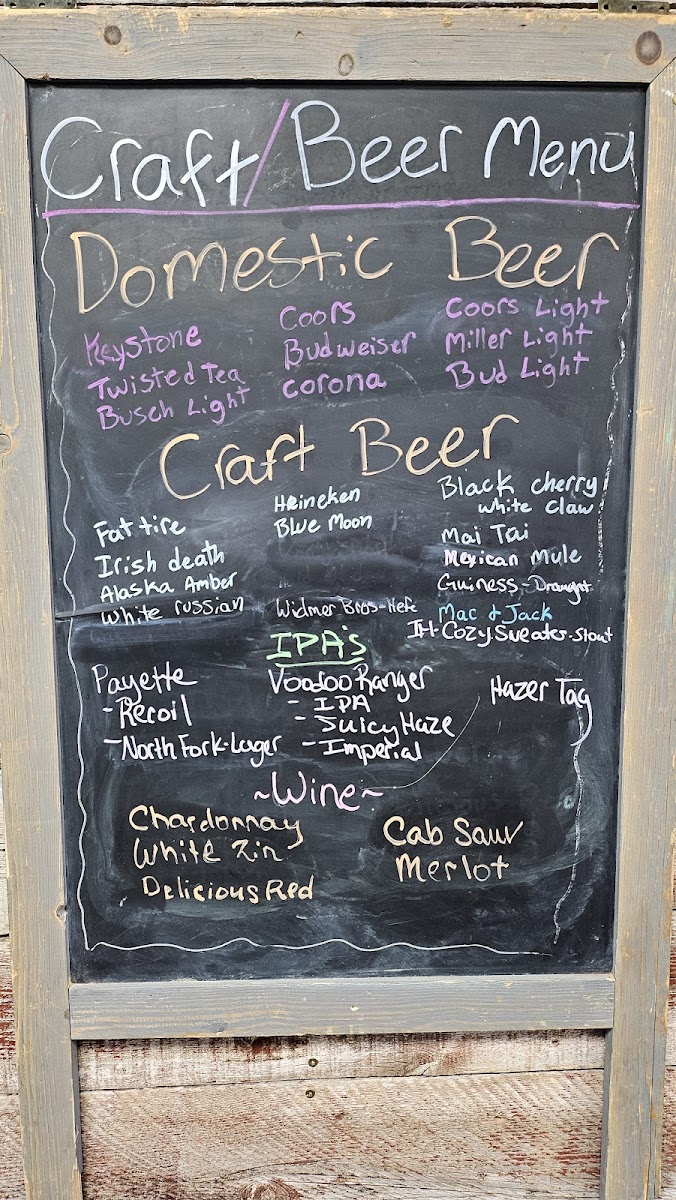 Craft/Beer Menu
Domestic Beer
Keystone
Twisted Tea
Busch Light
Coors
Budweiser
Corona
Coors Light
Miller Light
Bud Light
Craft Beer
Fat tire
Irish death
Alaska Amber
White russian
Heineken
Blue Moon
Widmer Bros-Hefe
Black cherry
white claw
Mai Tai
Mexican Mule
Guiness-Draught
Mac & Jack
IH-Cozy Sweater-Stout
IPA's
Payette
-Recoil
-North Fork-Lager
Voodoo Ranger
-IPA
-Juicy Haze
-Imperial
Hazer Tag
~Wine~
Chardonnay
White Zin
Delicious Red
Cab Sauv
Merlot